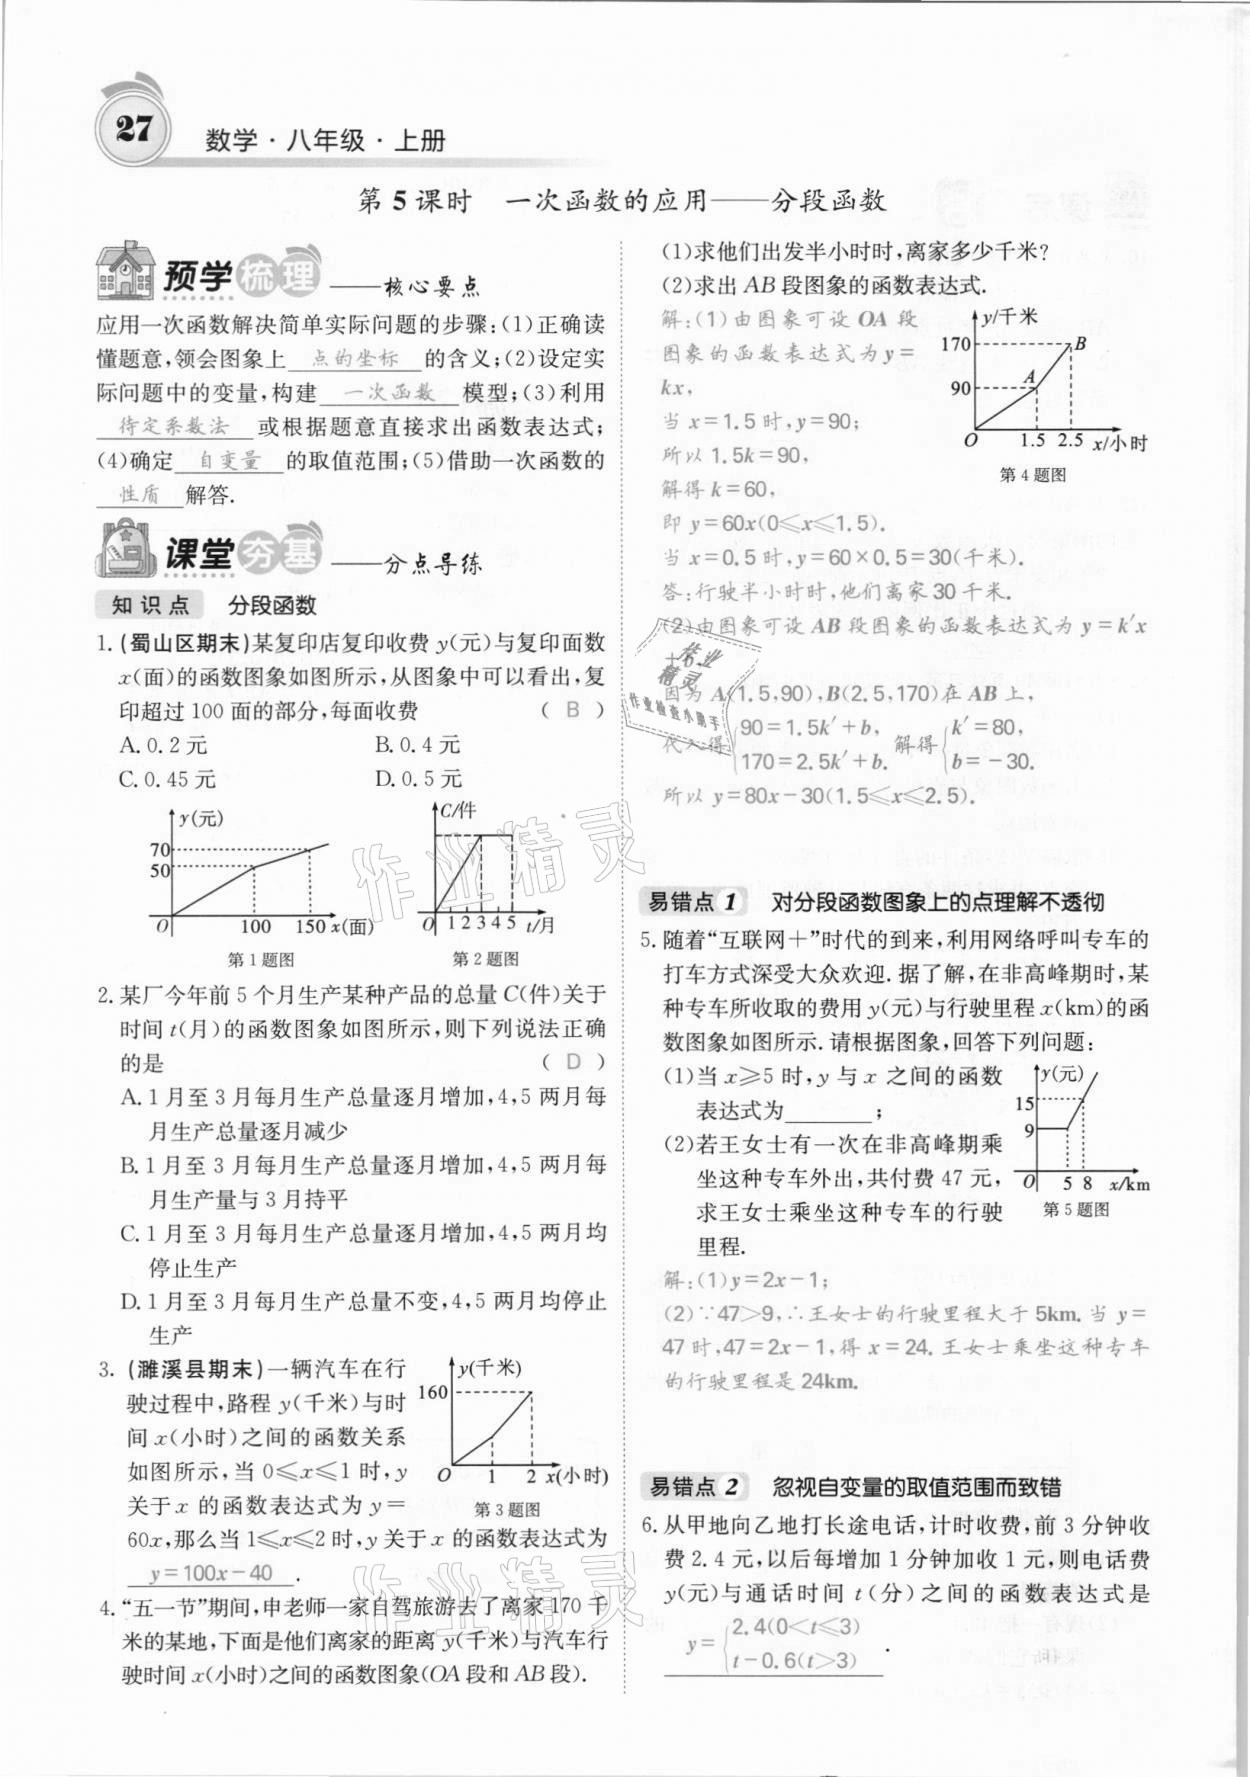 27
数学·八年级·上册
第5课时 一次函数的应用——分段函数
预学梳理——核心要点
应用一次函数解决简单实际问题的步骤:(1)正确读
懂题意,领会图象上 点的坐标 的含义;(2)设定实
际问题中的变量,构建 一次函数 模型;(3)利用
待定系数法 或根据题意直接求出函数表达式;
(4)确定 自变量 的取值范围;(5)借助一次函数的
性质 解答.
课堂夯基——分点导练
知识点 分段函数
1.(蜀山区期末)某复印店复印收费 y(元)与复印面数
x(面)的函数图象如图所示,从图象中可以看出,复
印超过 100 面的部分,每面收费 ( B )
A.0.2 元 B.0.4 元
C.0.45 元 D.0.5 元
y(元)
70
50
O 100 150 x(面)
第1题图
C/件
O 1 2 3 4 5 t/月
第2题图
2.某厂今年前 5 个月生产某种产品的总量 C(件)关于
时间 t(月)的函数图象如图所示,则下列说法正确
的是 ( D )
A.1 月至 3 月每月生产总量逐月增加,4,5 两月每
月生产总量逐月减少
B.1 月至 3 月每月生产总量逐月增加,4,5 两月每
月生产量与 3 月持平
C.1 月至 3 月每月生产总量逐月增加,4,5 两月均
停止生产
D.1 月至 3 月每月生产总量不变,4,5 两月均停止
生产
3.(濉溪县期末)一辆汽车在行
驶过程中,路程 y(千米)与时
间 x(小时)之间的函数关系
如图所示,当 0≤x≤1 时,y
关于 x 的函数表达式为 y=
60x,那么当 1≤x≤2 时,y 关于 x 的函数表达式为
y=100x-40 .
y(千米)
160
O 1 2 x(小时)
第3题图
4.“五一节”期间,申老师一家自驾旅游去了离家 170 千
米的某地,下面是他们离家的距离 y(千米)与汽车行
驶时间 x(小时)之间的函数图象(OA 段和 AB 段).
(1)求他们出发半小时时,离家多少千米?
(2)求出 AB 段图象的函数表达式.
解:(1)由图象可设 OA 段
图象的函数表达式为 y=
kx,
当 x=1.5 时,y=90;
所以 1.5k=90,
解得 k=60,
即 y=60x(0≤x≤1.5).
当 x=0.5 时,y=60×0.5=30(千米).
答:行驶半小时时,他们离家 30 千米.
(2)由图象可设 AB 段图象的函数表达式为 y=k′x
+b.
因为 A(1.5,90),B(2.5,170)在 AB 上,
代入得{90=1.5k′+b, 解得{k′=80,
170=2.5k′+b. b=-30.
所以 y=80x-30(1.5≤x≤2.5).
y/千米
170 B
90 A
O 1.5 2.5 x/小时
第4题图
易错点1 对分段函数图象上的点理解不透彻
5.随着“互联网+”时代的到来,利用网络呼叫专车的
打车方式深受大众欢迎.据了解,在非高峰期时,某
种专车所收取的费用 y(元)与行驶里程 x(km)的函
数图象如图所示.请根据图象,回答下列问题:
(1)当 x≥5 时,y 与 x 之间的函数
表达式为 ;
(2)若王女士有一次在非高峰期乘
坐这种专车外出,共付费 47 元,
求王女士乘坐这种专车的行驶
里程.
y(元)
15
9
O 5 8 x/km
第5题图
解:(1)y=2x-1;
(2)∵47>9,∴王女士的行驶里程大于 5km.当 y=
47 时,47=2x-1,得 x=24.王女士乘坐这种专车
的行驶里程是 24km.
易错点2 忽视自变量的取值范围而致错
6.从甲地向乙地打长途电话,计时收费,前 3 分钟收
费 2.4 元,以后每增加 1 分钟加收 1 元,则电话费
y(元)与通话时间 t(分)之间的函数表达式是
y={2.4(0<t≤3)
t-0.6(t>3) .
作业精灵
作业精灵
作业
精灵
作业检查小助手